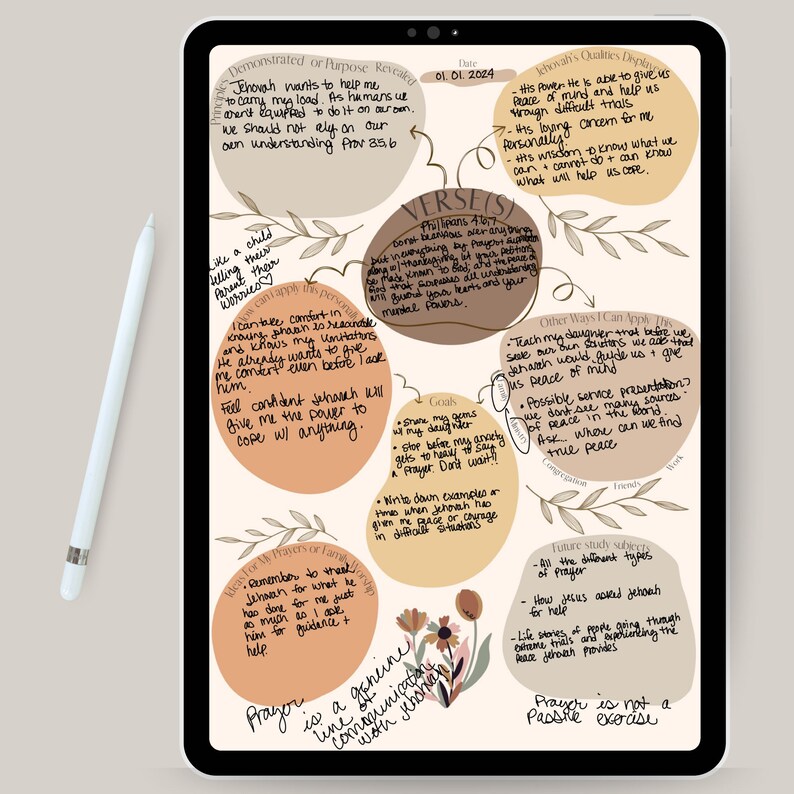 Principles Demonstrated or Purpose Revealed
Jehovah wants to help me
to carry my load. As humans we
aren't equipped to do it on our own.
We should not rely on our
own understanding Prov 3:5,6
Date
01.01.2024
Jehovah's Qualities Displayed
- His Power: He is able to give us
peace of mind and help us
through difficult trials
- His loving concern for me
personally.
- His wisdom to know what we
can + cannot do + can know
what will help us cope.
VERSE(S)
Phillipans 4:6,7
Do not be anxious over anything,
but in everything by prayer + supplication
along w/ thanksgiving, let your petitions
be made known to God; and the peace of
God that surpasses all understanding
will guard your hearts and your
mental powers.
Like a child
telling their
parent their
worries♡
How can I apply this personally
I can take comfort in
knowing Jehovah is reasonable
and knows my limitations
He already wants to give
me comfort even before I ask
him.
Feel confident Jehovah will
give me the power to
cope w/ anything.
Other Ways I Can Apply This
• Teach my daughter that before we
seek our own solutions we ask that
Jehovah would guide us + give
us peace of mind
• Possible service presentation?
we dont see many sources
of peace in the world.
Ask... where can we find
true peace
Family
Ministry
Congregation
Friends
Work
Goals
• Share my gems
w/ my daughter
• Stop before my anxiety
gets to heavy to say
a prayer. Dont wait!!
• Write down examples or
times when Jehovah has
given me peace or courage
in difficult situations
Ideas For My Prayers or Family Worship
• Remember to thank
Jehovah for what he
has done for me just
as much as I ask
him for guidance +
help.
Future study subjects
- All the different types
of prayer
- How Jesus asked Jehovah
for help
- Life stories of people going through
extreme trials and experiencing the
peace Jehovah provides
Prayer is a genuine
line of
communication
with Jehovah
Prayer is not a
Passive exercise